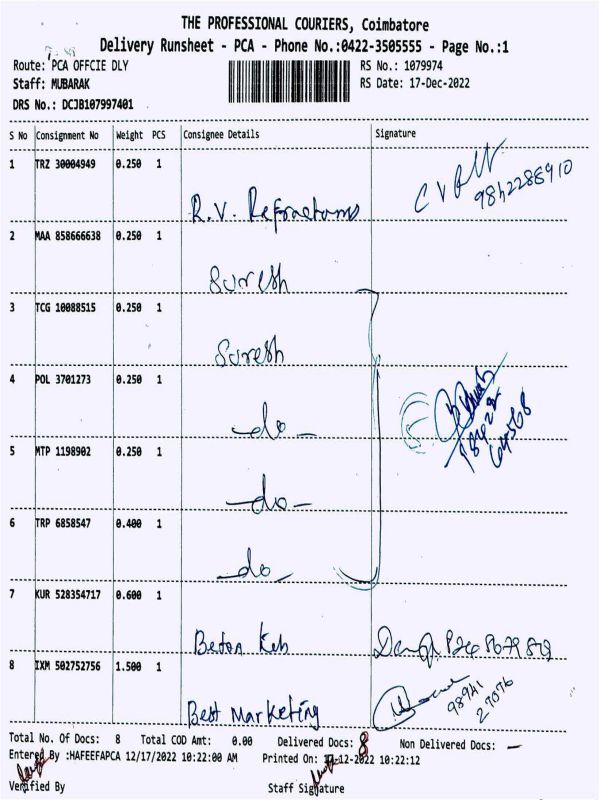 THE PROFESSIONAL COURIERS, Coimbatore
Delivery Runsheet - PCA - Phone No.:0422-3505555 - Page No.:1
Route: PCA OFFCIE DLY RS No.: 1079974
Staff: MUBARAK RS Date: 17-Dec-2022
DRS No.: DCJB107997401
S No Consignment No Weight PCS Consignee Details Signature
1 TRZ 30004949 0.250 1 R.V. Refractories 9842288910
2 MAA 858666638 0.250 1 Suresh
3 TCG 10088515 0.250 1 Suresh
4 POL 3701273 0.250 1 -do-
5 MTP 1198902 0.250 1 -do-
6 TRP 6858547 0.400 1 -do-
7 KUR 528354717 0.600 1
8 IXM 502752756 1.500 1 Best Marketing 98941 27076
Total No. Of Docs: 8 Total COD Amt: 0.00 Delivered Docs: 8 Non Delivered Docs: -
Entered By :HAFEEFAPCA 12/17/2022 10:22:00 AM Printed On: -12-2022 10:22:12
Verified By Staff Signature